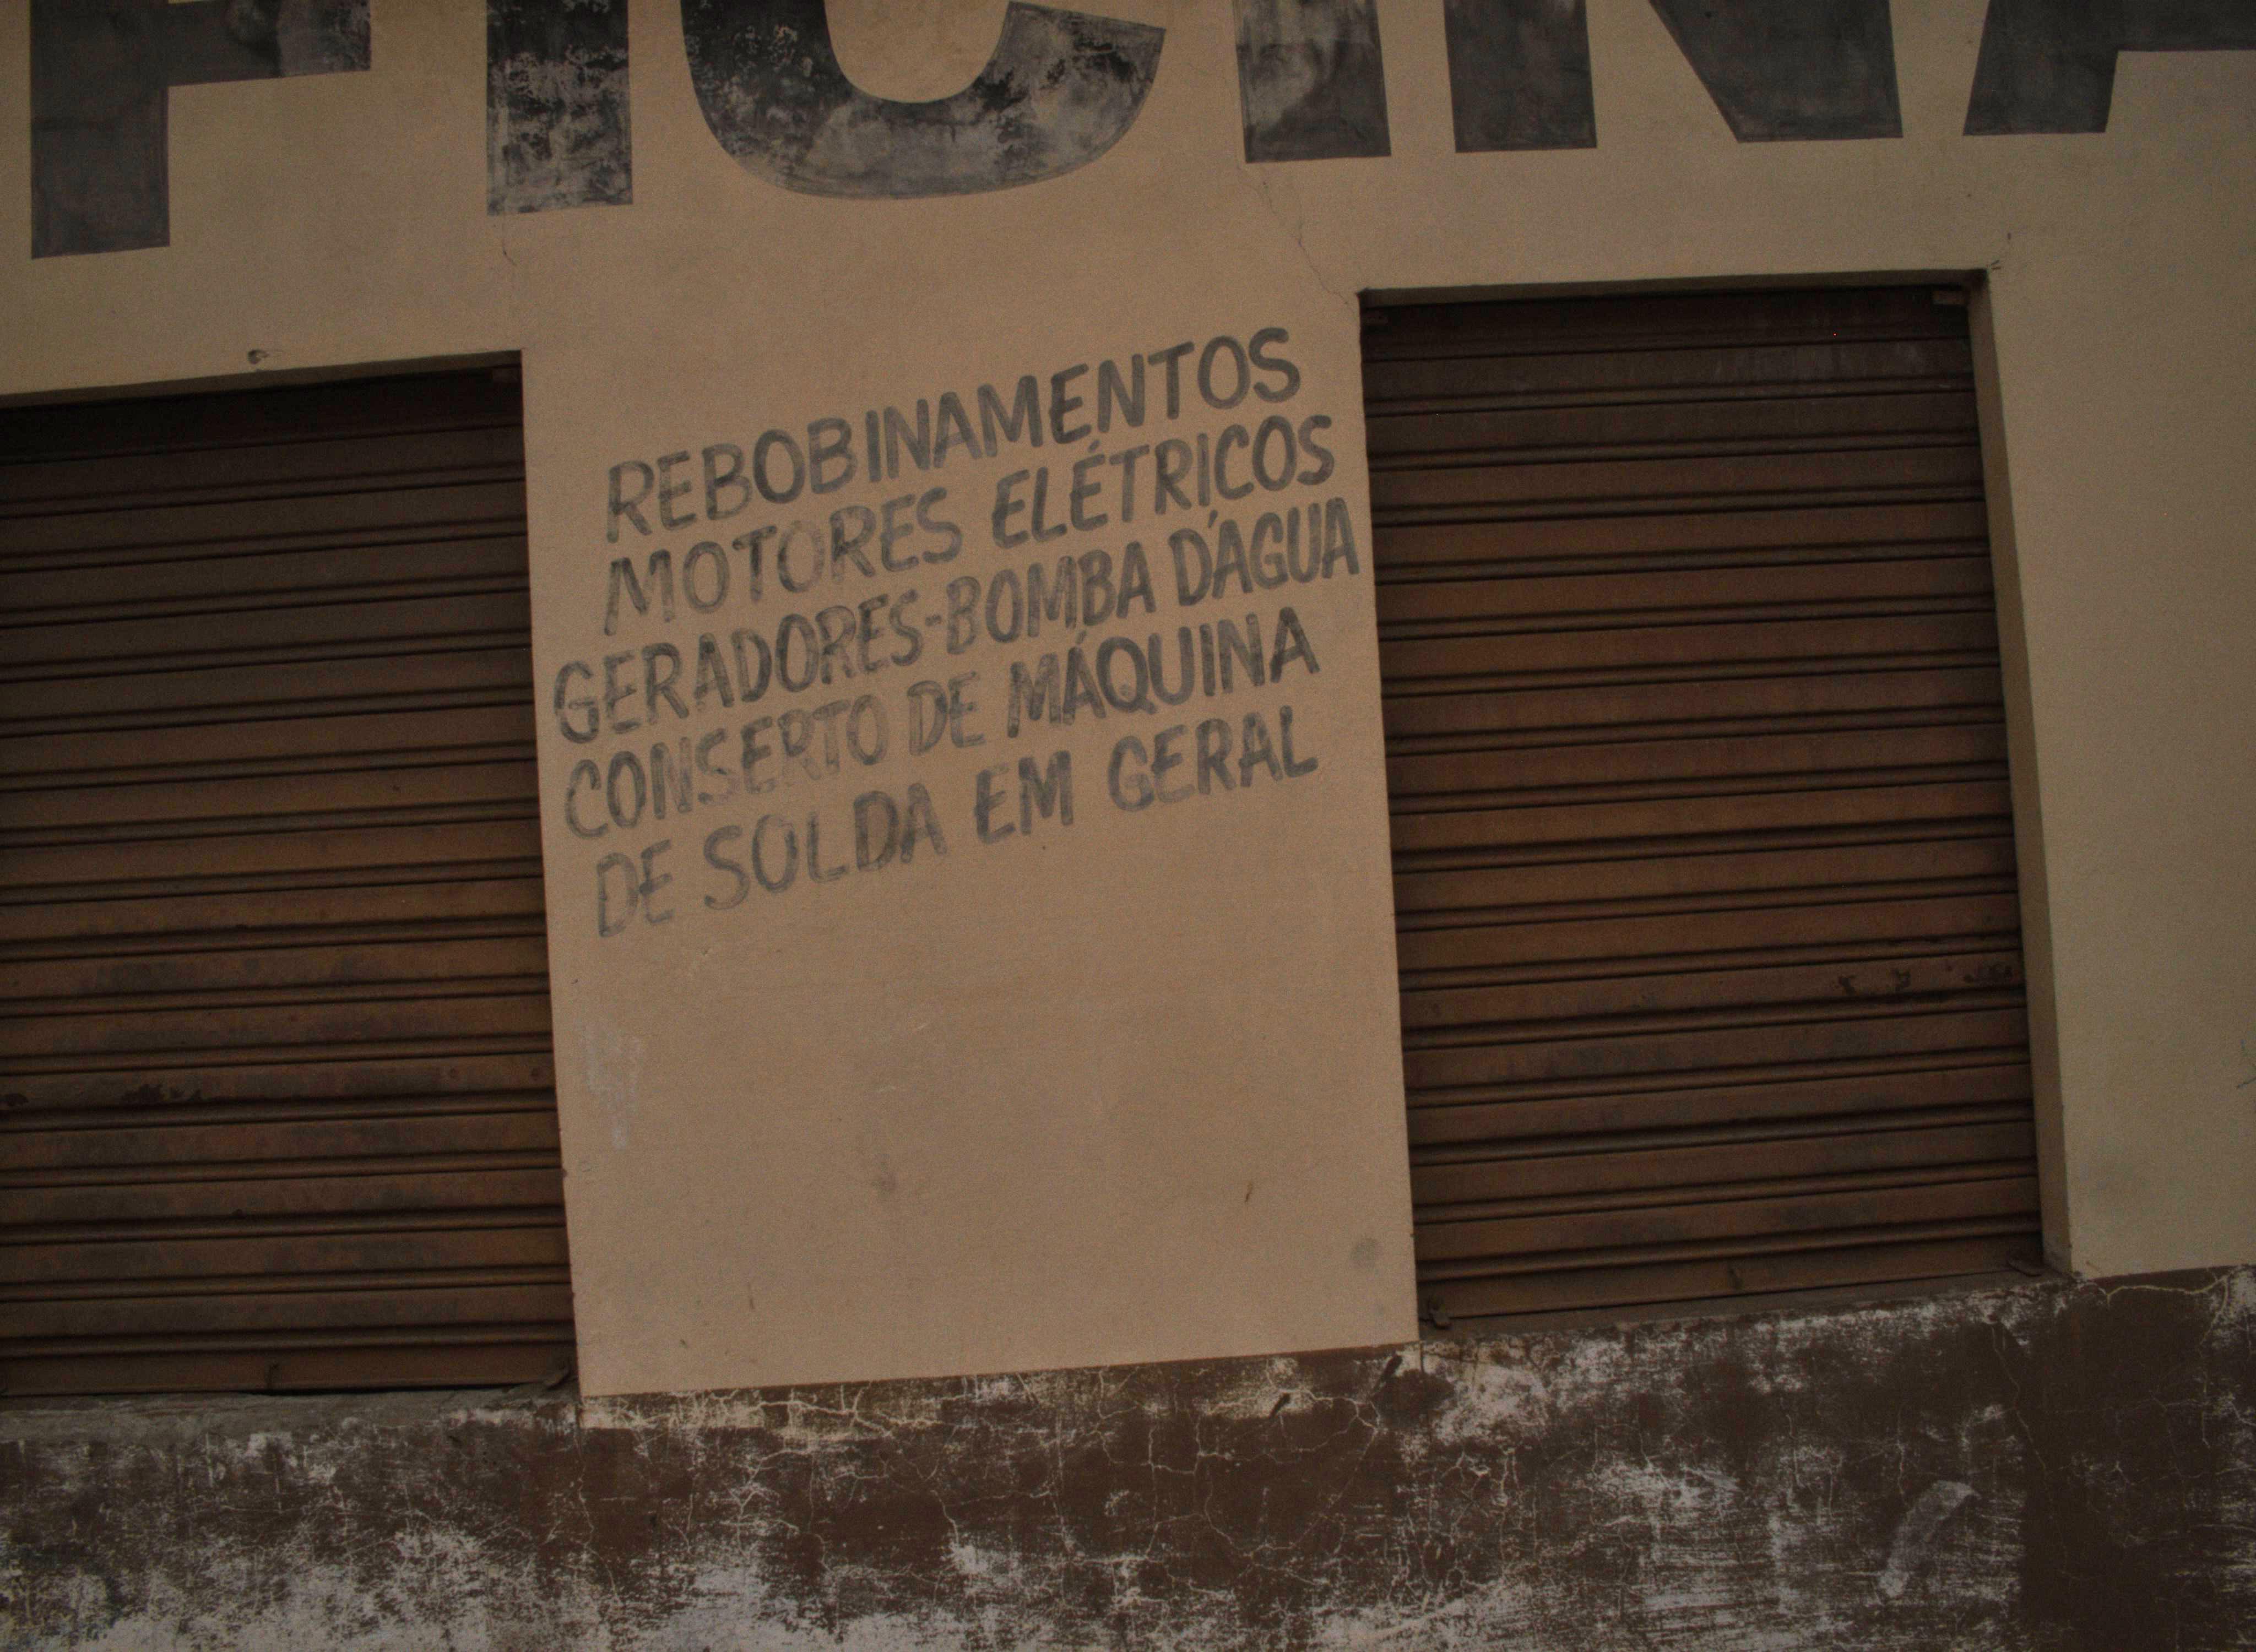 FICINA
REBOBINAMENTOS
MOTORES ELÉTRICOS
GERADORES-BOMBA D'ÁGUA
CONSERTO DE MÁQUINA
DE SOLDA EM GERAL